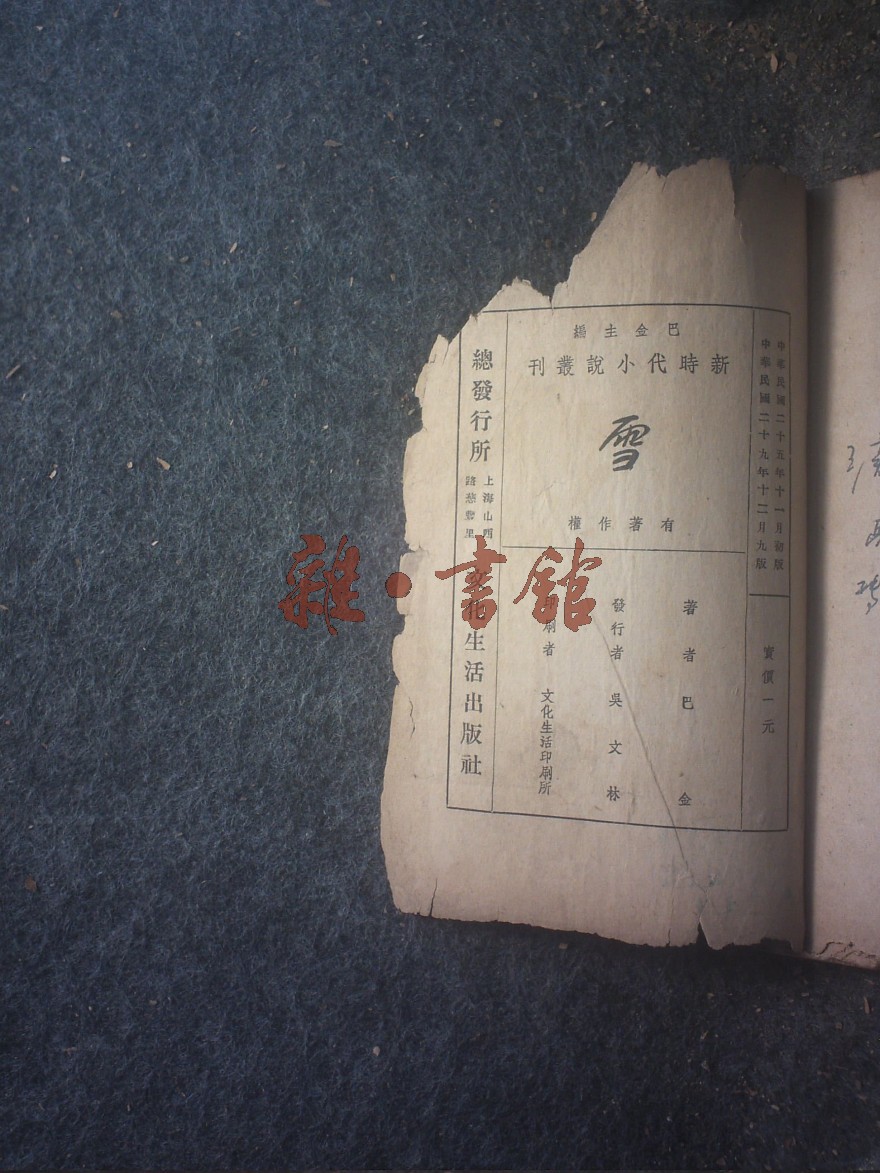 中華民國二十五年十一月初版
中華民國二十九年十二月九版
實價一元
巴金主編
新時代小說叢刊
雪
有著作權
著者 巴金
發行者 吳文林
印刷者 文化生活印刷所
總發行所
上海山西
路慈豐里
文化生活出版社
雜·書館